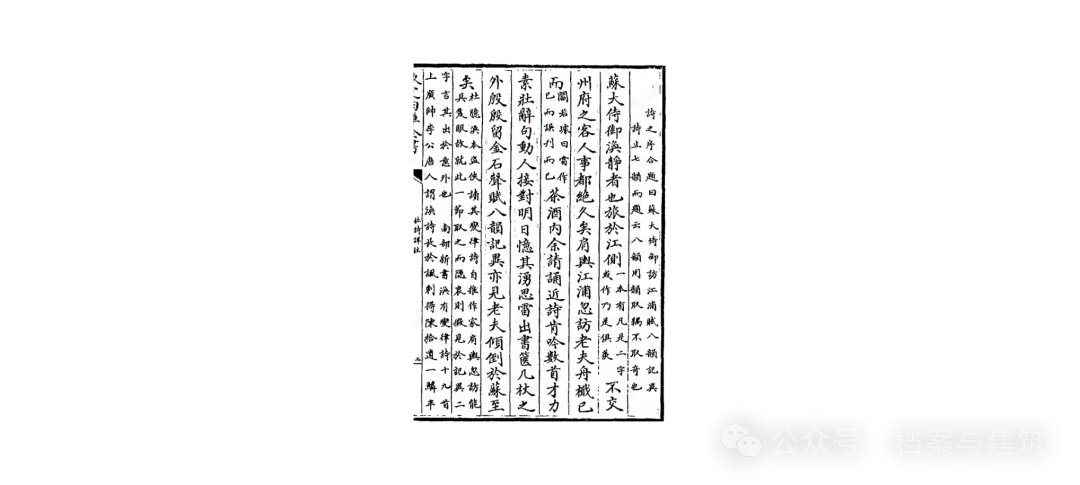 詩之序合題曰蘇大侍御訪江浦賦八韻記異
詩止七韻而題云八韻用韻取耦不取奇也
蘇大侍御渙靜者也旅於江側一本有凡是二字或作乃是俱羡不交
州府之客人事都絕久矣肩輿江浦忽訪老夫舟檝已
而閻若璩曰當作已而誤刋而已茶酒內余請誦近詩肯吟數首才力
素壯辭句動人接對明日憶其湧思雷出書篋几杖之
外殷殷留金石聲賦八韻記異亦見老夫傾倒於蘇至
矣杜臆渙本盜俠讀其變律詩自推作家肩輿忽訪能具隻眼故就此一節取之而隱衷則微見於記異二
字言其出於意外也 南部新書渙有變律詩十九首
上廣帥李公唐人謂渙詩長於諷刺得陳拾遺一鱗半
杜詩詳註
公众号 · 档案与建筑